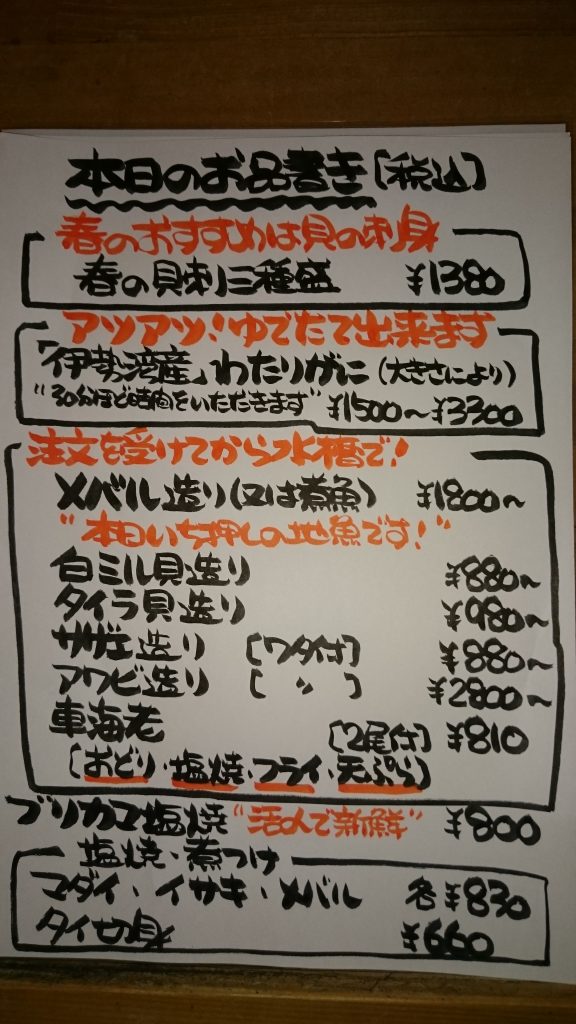 本日のお品書き[税込]
春のおすすめは貝の刺身
春の貝刺三種盛 ¥1380
アツアツ!ゆでたて出来ます
「伊勢湾産」わたりがに(大きさにより)
"30分ほど時間をいただきます" ¥1500～¥3300
注文を受けてから水槽で!
メバル造り(又は煮魚) ¥1800～
"本日いち押しの地魚です!"
白ミル貝造り ¥880～
タイラ貝造り ¥980～
サザエ造り [ワタ付] ¥880～
アワビ造り [ 〃 ] ¥2800～
車海老 [2尾付] ¥810
[おどり・塩焼・フライ・天ぷら]
ブリカマ塩焼 "活〆で新鮮" ¥800
塩焼・煮つけ
マダイ・イサキ・メバル 各¥830
タイ切身 ¥660